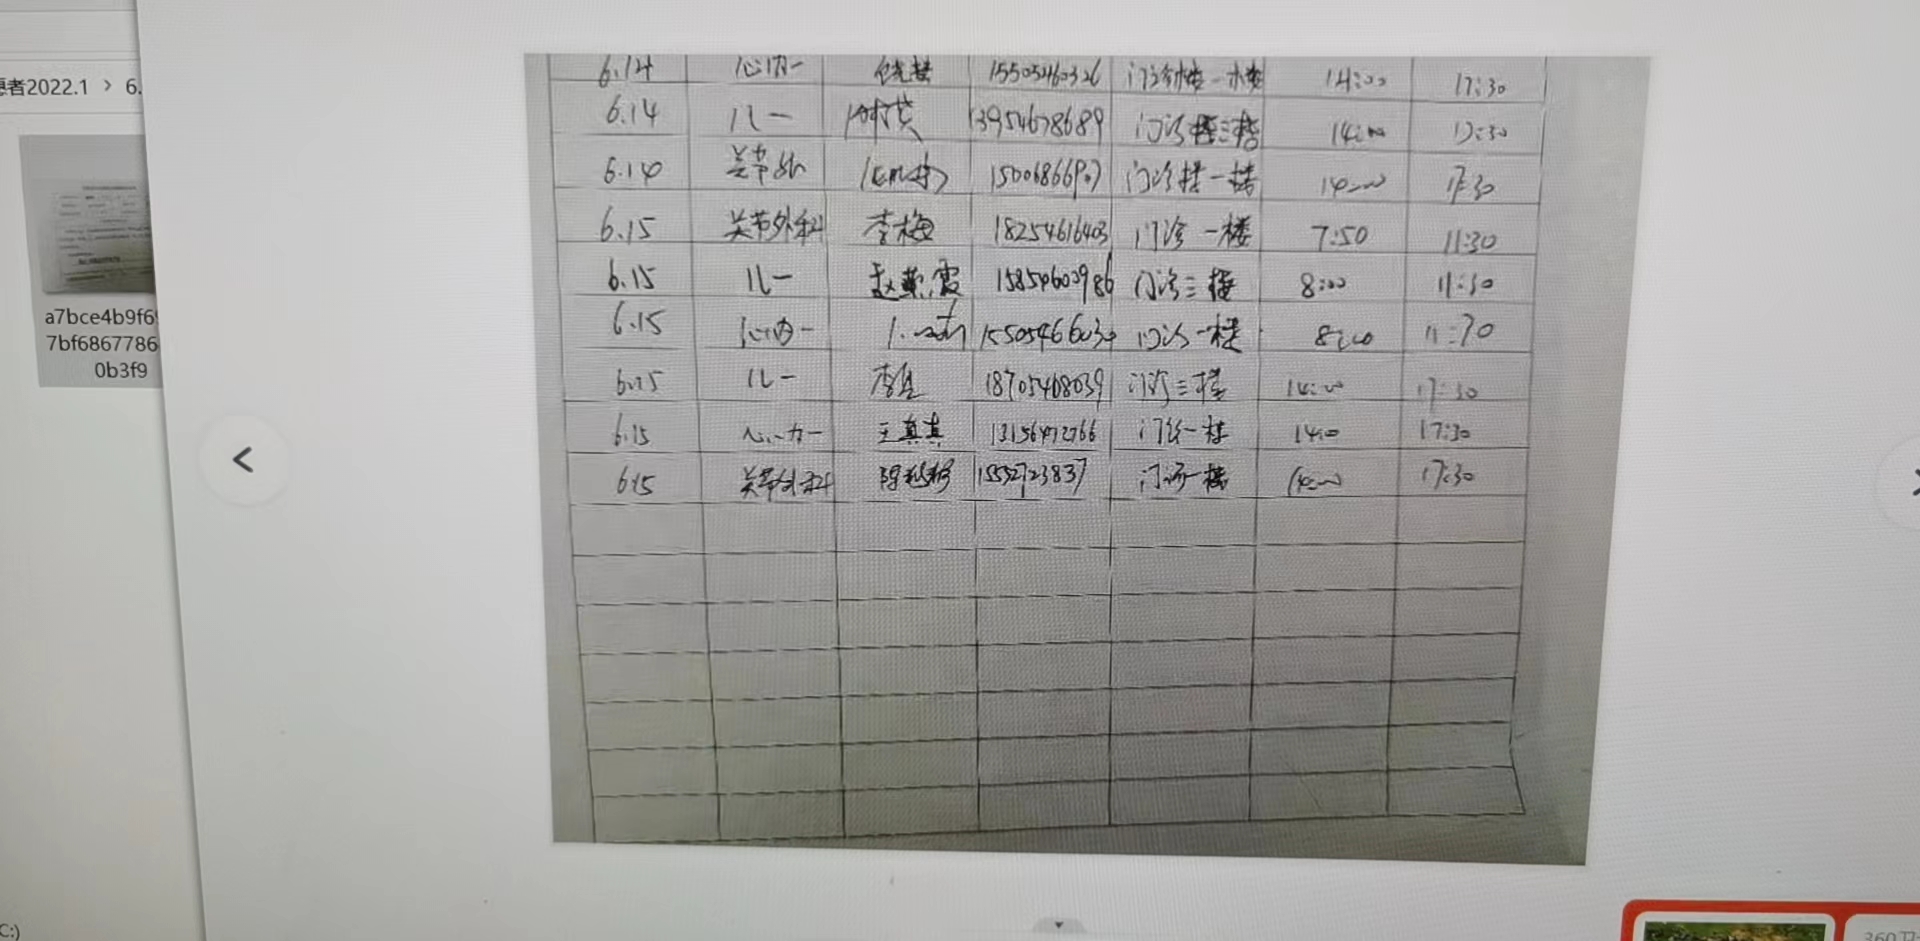 愿者2022.1 > 6.
a7bce4b9f69
7bf6867786
0b3f9
C:)
6.14 心内一 15505460326 门诊楼一楼 14:00 17:30
6.14 儿一 13954678689 门诊楼三楼 14:00 17:30
6.14 关节外 门诊楼一楼 14:00 17:30
6.15 关节外科 李梅 18254616403 门诊一楼 7:50 11:30
6.15 儿一 赵燕霞 15854600986 门诊三楼 8:00 11:30
6.15 心内一 门诊一楼 8:00 11:30
6.15 儿一 18705468039 门诊三楼 14:00 17:30
6.15 心内一 王真真 13156472766 门诊一楼 14:00 17:30
6.15 关节外科 15552723837 门诊一楼 14:00 17:30